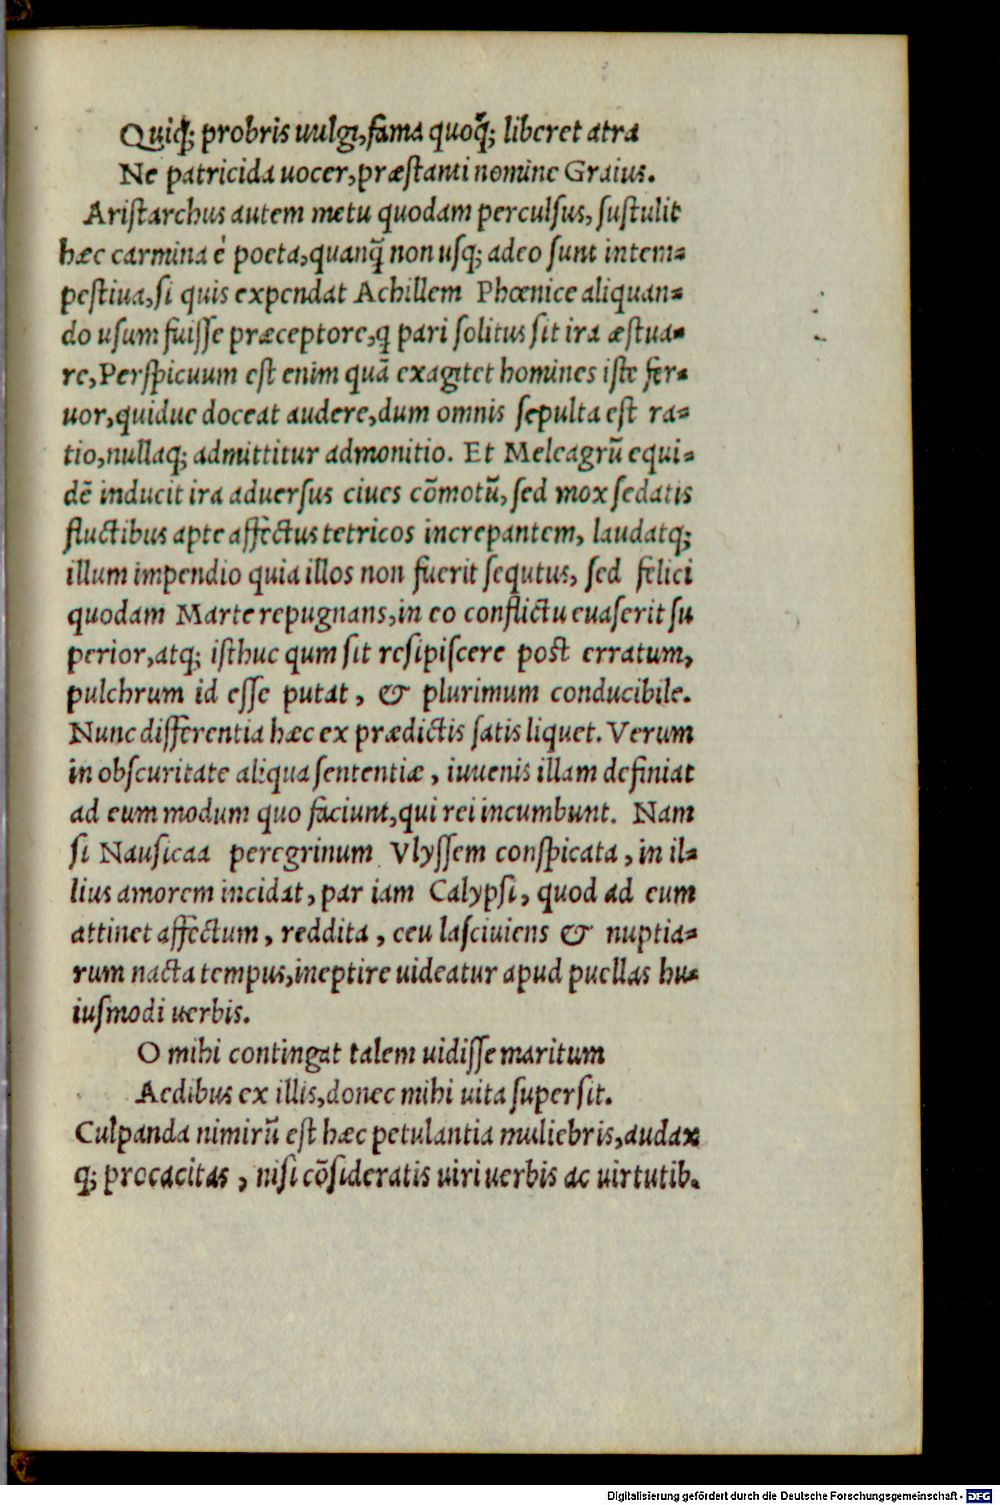 Quiq; probris uulgi, fama quoq̃; liberet atra
Ne patricida uocer, præstanti nomine Graius.
Aristarchus autem metu quodam perculsus, sustulit
hæc carmina è poeta, quanq̃ non usq; adeo sunt intem-
pestiua, si quis expendat Achillem Phœnice aliquan-
do usum fuisse præceptore, q pari solitus sit ira æstua-
re, Perspicuum est enim quã exagitet homines iste fer-
uor, quidue doceat audere, dum omnis sepulta est ra-
tio, nullaq; admittitur admonitio. Et Meleagrũ equi-
dẽ inducit ira aduersus ciues cõmotũ, sed mox sedatis
fluctibus apte affectus tetricos increpantem, laudatq;
illum impendio quia illos non fuerit sequtus, sed felici
quodam Marte repugnans, in eo conflictu euaserit su
perior, atq; isthuc qum sit resipiscere post erratum,
pulchrum id esse putat, & plurimum conducibile.
Nunc differentia hæc ex prædictis satis liquet. Verum
in obscuritate aliqua sententiæ, iuuenis illam definiat
ad eum modum quo faciunt, qui rei incumbunt. Nam
si Nausicaa peregrinum Vlyssem conspicata, in il-
lius amorem incidat, par iam Calypsi, quod ad eum
attinet affectum, reddita, ceu lasciuiens & nuptia-
rum nacta tempus, ineptire uideatur apud puellas hu-
iusmodi uerbis.
O mihi contingat talem uidisse maritum
Aedibus ex illis, donec mihi uita supersit.
Culpanda nimirũ est hæc petulantia muliebris, audax
q; procacitas, nisi cõsideratis uiri uerbis ac uirtutib.
Digitalisierung gefördert durch die Deutsche Forschungsgemeinschaft - DFG